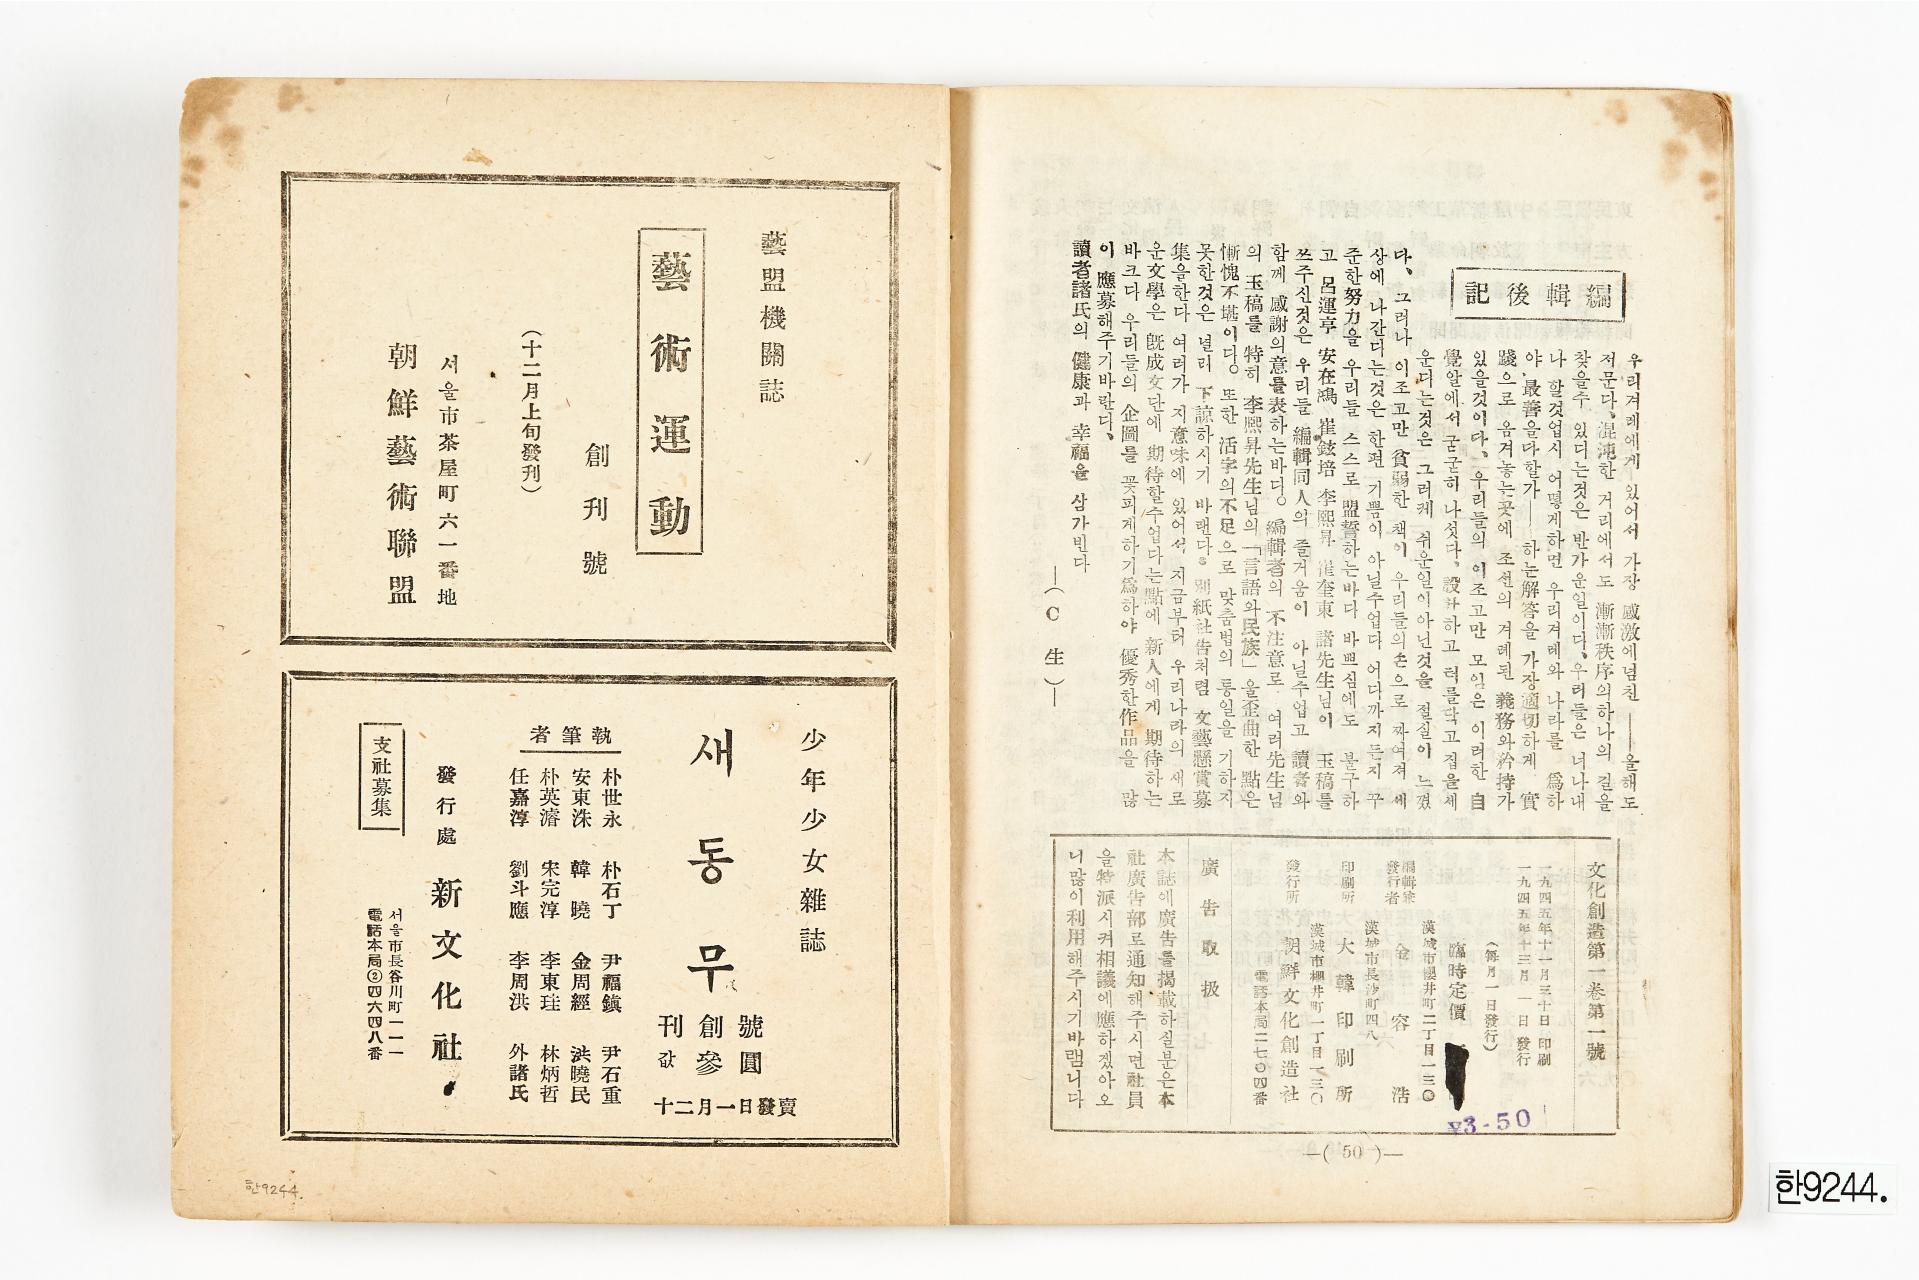 編輯後記
우리겨레에게 있어서 가장 感激에넘친 ――올해도
저문다、混沌한 거리에서도 漸漸秩序의하나의 길을
찾을수 있다는것은 반가운일이다、우리들은 너나내
나 할것업시 어떻게하면 우리겨레와 나라를 爲하
야 最善을다할가―― 하는解答을 가장適切하게 實
踐으로 옴겨놓는곳에 조선의 겨레된 義務와矜持가
있을것이다、우리들의 이조고만 모임은 이러한 自
覺알에서 굳굳히 나섯다、設計하고 터를닥고 집을세
운다는것은 그러케 쉬운일이아닌것을 절실이 느꼈
다、그러나 이조고만 貧弱한 책이 우리들의손으로 짜여져 세
상에 나간다는것은 한편 기쁨이 아닐수업다 어다까지든지 꾸
준한努力을 우리들 스스로 盟誓하는바다 바쁘심에도 불구하
고 呂運亨 安在鴻 崔鉉培 李熙昇 崔奎東 諸先生님이 玉稿를
쓰주신것은 우리들 編輯同人의 즐거움이 아닐수업고 讀者와
함께 感謝의意를表하는바다。編輯者의 不注意로 여러先生님
의 玉稿를 特히 李熙昇先生님의「言語와民族」울歪曲한 點은
慚愧不堪이다。또한 活字의不足으로 맞춤법의 통일을 기하지
못한것은 널리 下諒하시기 바랜다。別紙社告처럼 文藝懸賞募
集을한다 여러가 지意味에 있어서 지금부터 우리나라의 새로
운文學은 旣成文단에 期待할수업다는點에 新人에게 期待하는
바크다 우리들의 企圖를 꽃피게하기爲하야 優秀한作品을 많
이 應募해주기바란다、
讀者諸氏의 健康과 幸福을 삼가빈다
―(C 生)―
文化創造第一卷第一號
一九四五年十一月三十日印刷
一九四五年十三月 一 日發行
(每月一日發行)
臨時定價
¥3-50
漢城市櫻井町二丁目一三〇
編輯兼
發行者 金容浩
漢城市長沙町四八
印刷所 大韓印刷所
漢城市櫻井町一丁目一三〇
發行所 朝鮮文化創造社
電話本局二七〇四番
廣告取扱
本誌에廣告를揭載하실분은本
社廣告部로通知해주시면社員
을特派시켜相議에應하겠아오
니많이利用해주시기바램니다
―( 50 )―
藝盟機關誌
藝術運動
創刊號
(十二月上旬發刊)
서울市茶屋町六一番地
朝鮮藝術聯盟
少年少女雜誌
새동무
刊創號
값參圓
十二月一日發賣
執筆者
朴世永 朴石丁 尹福鎭 尹石重
安東洙 韓曉 金周經 洪曉民
朴英濬 宋完淳 李東珪 林炳哲
任嘉淳 劉斗應 李周洪 外諸氏
發行處 新文化社
서울市長谷川町一一一
電話本局②四六四八番
支社募集
한9244.
한9244.